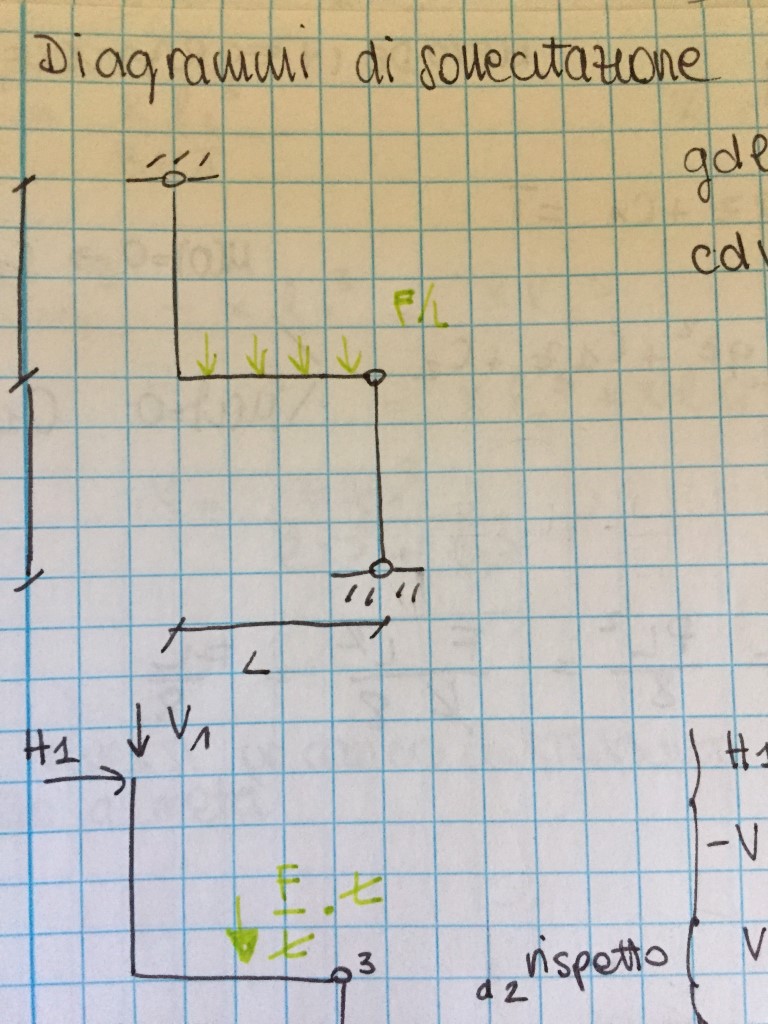 Diagrammi di sollecitazione
gde
cdv
F/L
L
H1
V1
F/L . L
3
H1
-V
V
rispetto
a 2